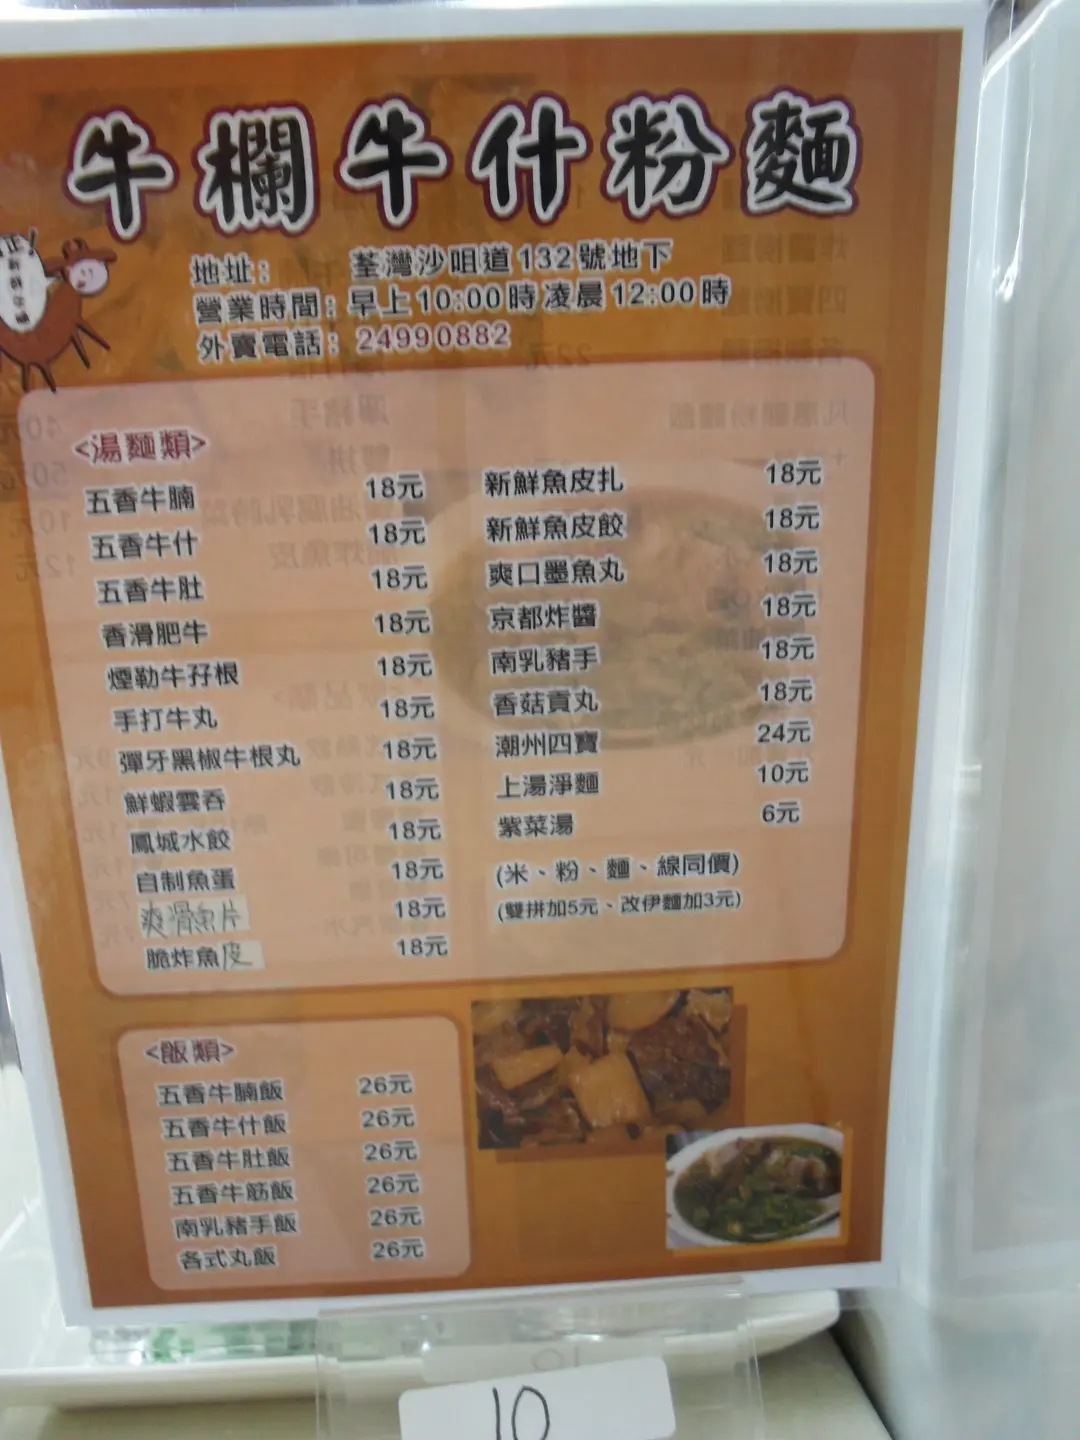 牛欄牛什粉麵
地址: 荃灣沙咀道132號地下
營業時間: 早上10:00時凌晨12:00時
外賣電話: 24990882
<湯麵類>
五香牛腩 18元
五香牛什 18元
五香牛肚 18元
香滑肥牛 18元
煙勒牛孖根 18元
手打牛丸 18元
彈牙黑椒牛根丸 18元
鮮蝦雲吞 18元
鳳城水餃 18元
自制魚蛋 18元
爽滑魚片 18元
脆炸魚皮 18元
新鮮魚皮扎 18元
新鮮魚皮餃 18元
爽口墨魚丸 18元
京都炸醬 18元
南乳豬手 18元
香菇貢丸 18元
潮州四寶 24元
上湯淨麵 10元
紫菜湯 6元
(米、粉、麵、線同價)
(雙拼加5元、改伊麵加3元)
<飯類>
五香牛腩飯 26元
五香牛什飯 26元
五香牛肚飯 26元
五香牛筋飯 26元
南乳豬手飯 26元
各式丸飯 26元
10